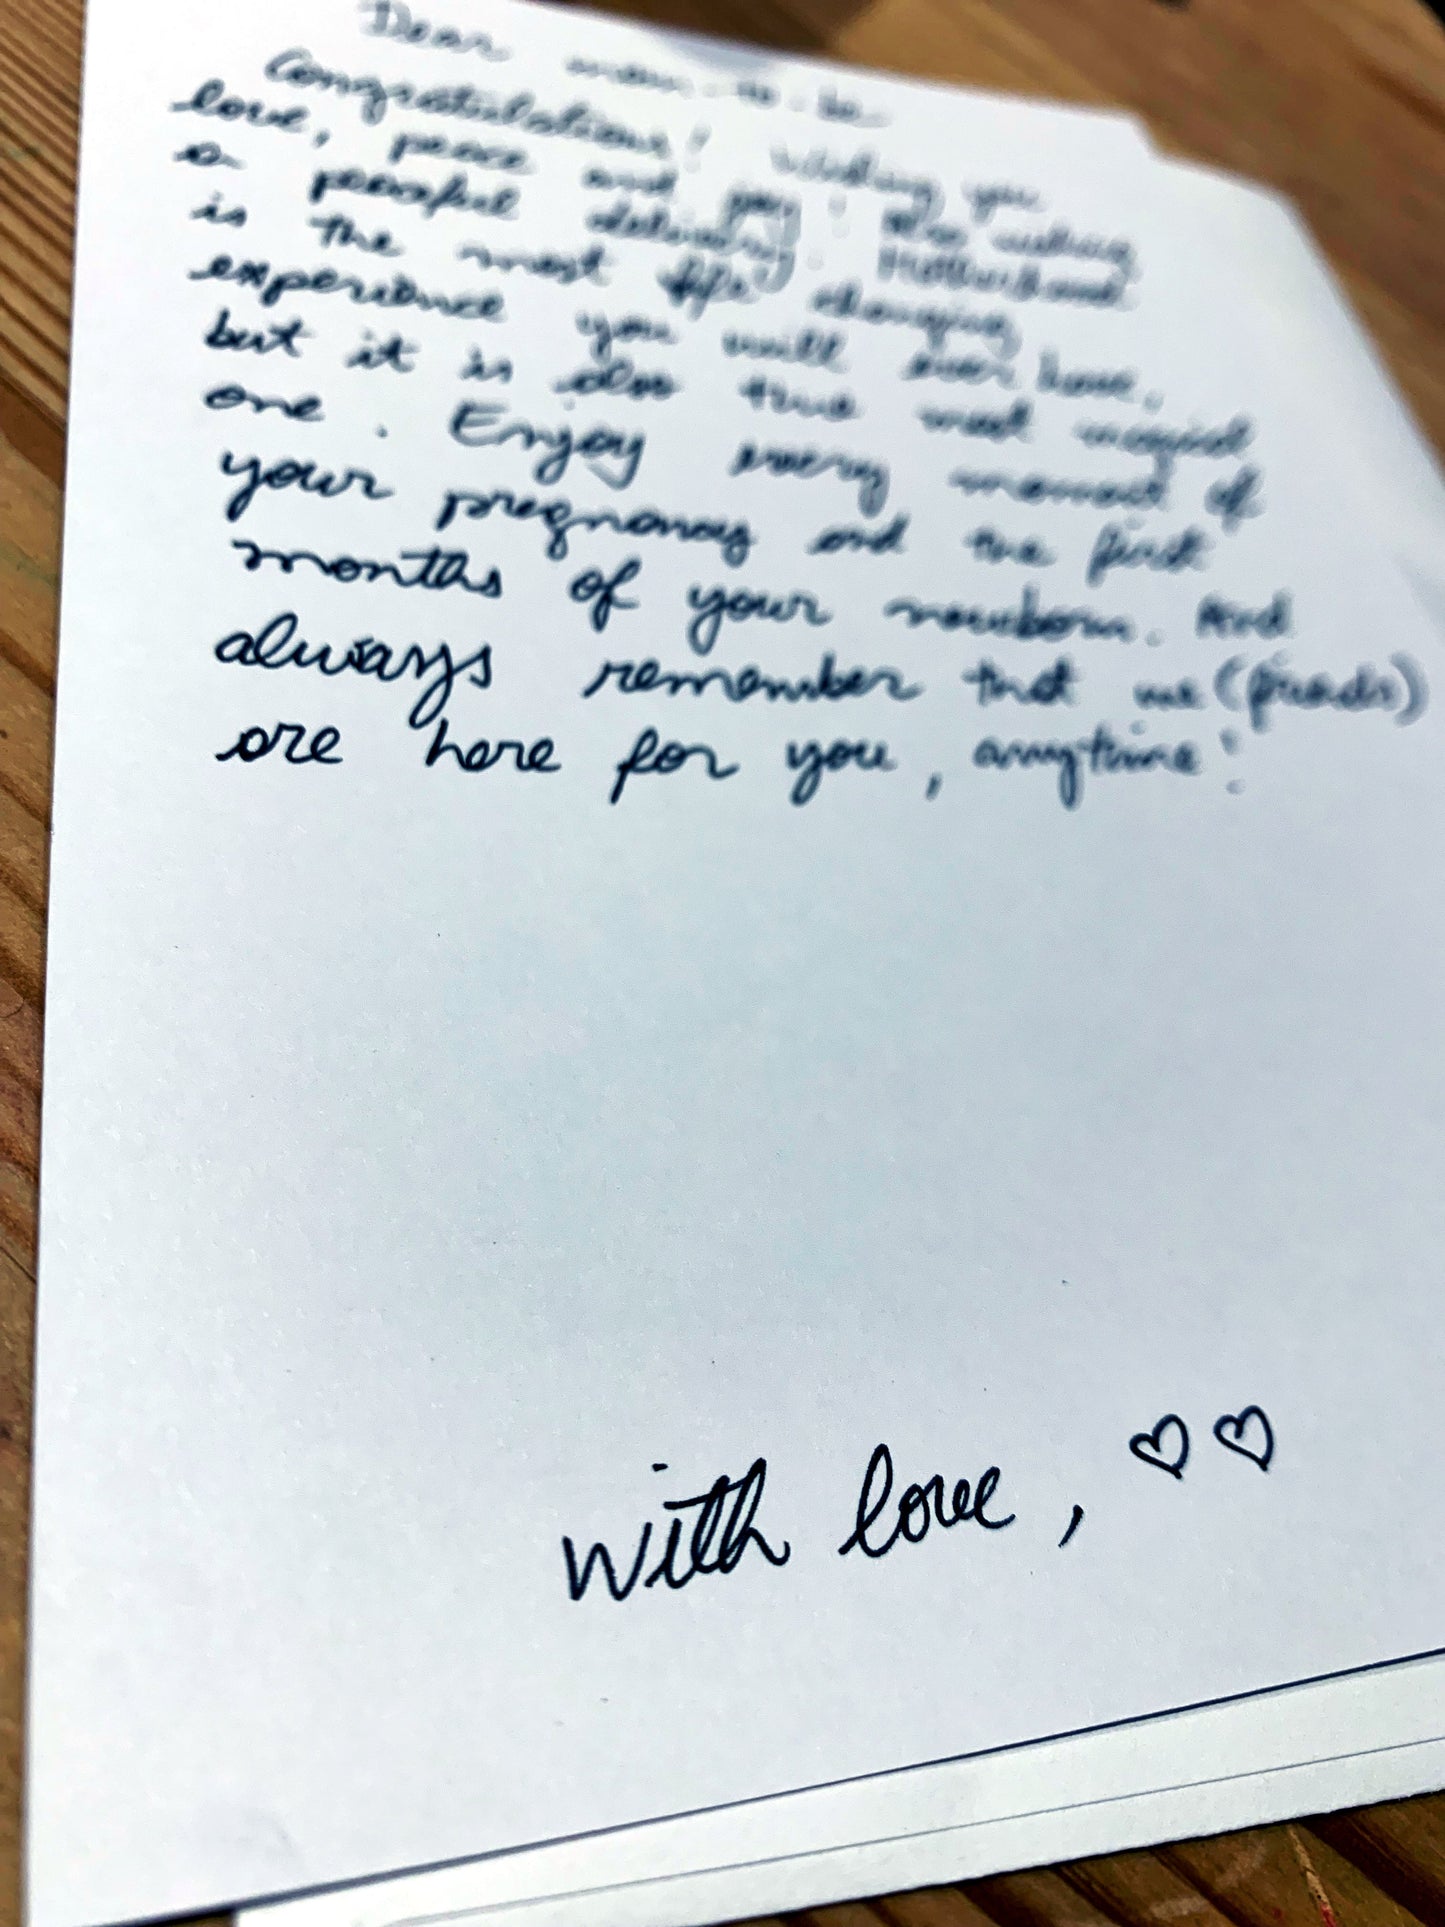 Dear mom-to-be
Congratulations! Wishing you
love, peace and joy! Also wishing
a peaceful delivery. Motherhood
is the most life changing
experience you will ever have,
but it is also the most magical
one. Enjoy every moment of
your pregnancy and the first
months of your newborn. And
always remember that we (friends)
are here for you, anytime!
With love, ♡♡